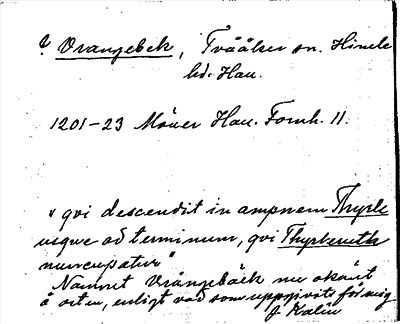 ? Vrangebek, Tvååker sn. Himle
hd. Hall.
1201-23 Möller Hall. Fornh. 11.
"qvi descendit in ampnem Thyrle
usqve ad terminum, qvi Thyrleruth
nuncupatur"
Namnet Vrångebäck nu okänt
å orten, enligt vad som uppgivits för mig
J Kalén